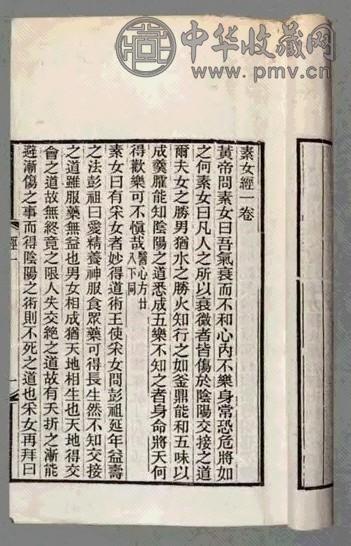 中华收藏网
www.pmv.cn
素女經一卷
黃帝問素女曰吾氣衰而不和心內不樂身常恐危將如
之何素女曰凡人之所以衰微者皆傷於陰陽交接之道
爾夫女之勝男猶水之勝火知行之如釜鼎能和五味以
成羹臛能知陰陽之道悉成五樂不知之者身命將夭何
得歡樂可不慎哉醫心方廿八下同
素女曰有采女者妙得道術王使采女問彭祖延年益壽
之法彭祖曰愛精養神服食眾藥可得長生然不知交接
之道雖服藥無益也男女相成猶天地相生也天地得交
會之道故無終竟之限人失交絕之道故有夭折之漸能
避漸傷之事而得陰陽之術則不死之道也采女再拜曰
經一